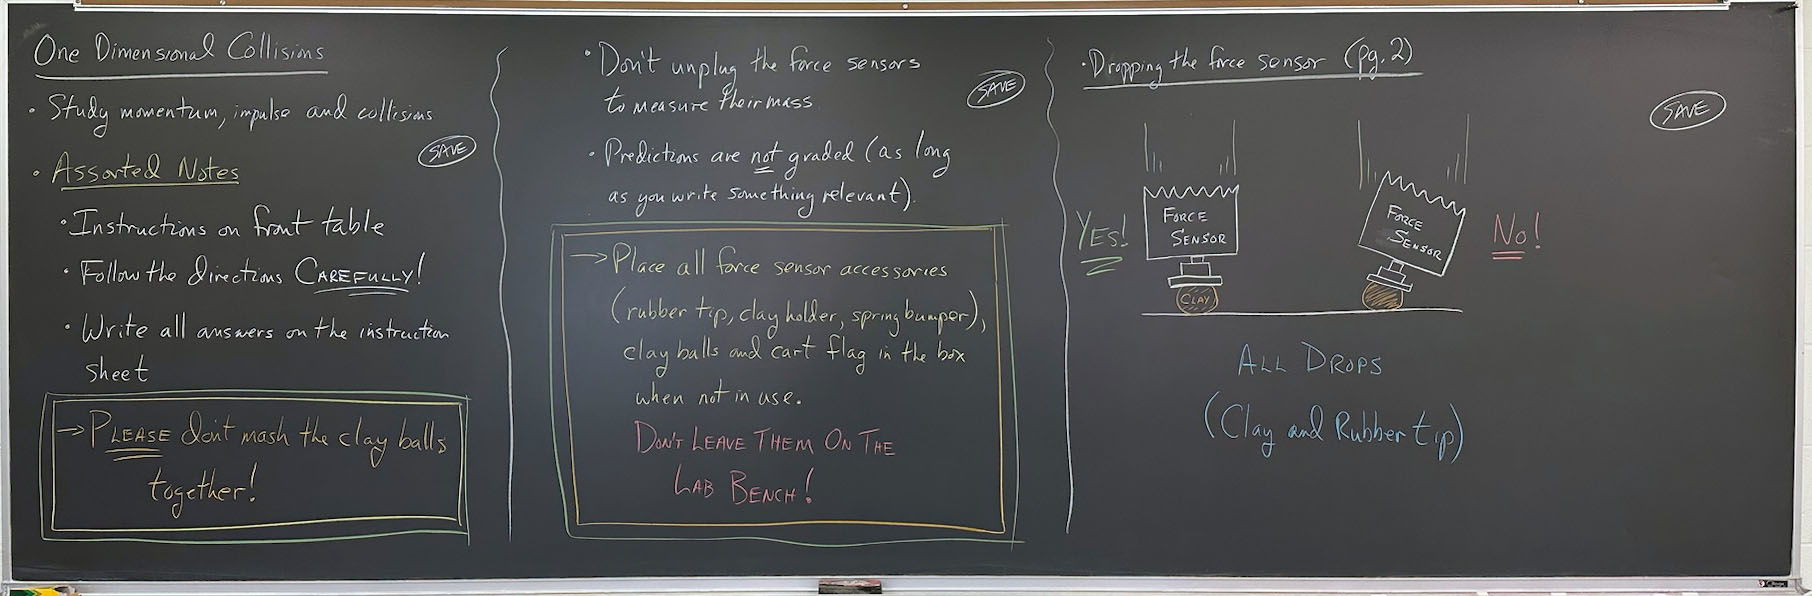 One Dimensional Collisions
• Study momentum, impulse and collisions
SAVE
• Assorted Notes
• Instructions on front table
• Follow the directions CAREFULLY!
• Write all answers on the instruction
sheet
→ PLEASE don't mash the clay balls
together!
• Don't unplug the force sensors
to measure their mass
SAVE
• Predictions are not graded (as long
as you write something relevant).
→ Place all force sensor accessories
(rubber tip, clay holder, spring bumper),
clay balls and cart flag in the box
when not in use.
DON'T LEAVE THEM ON THE
LAB BENCH!
• Dropping the force sensor (pg. 2)
SAVE
YES!
FORCE
SENSOR
CLAY
FORCE
SENSOR
NO!
ALL DROPS
(Clay and Rubber tip)